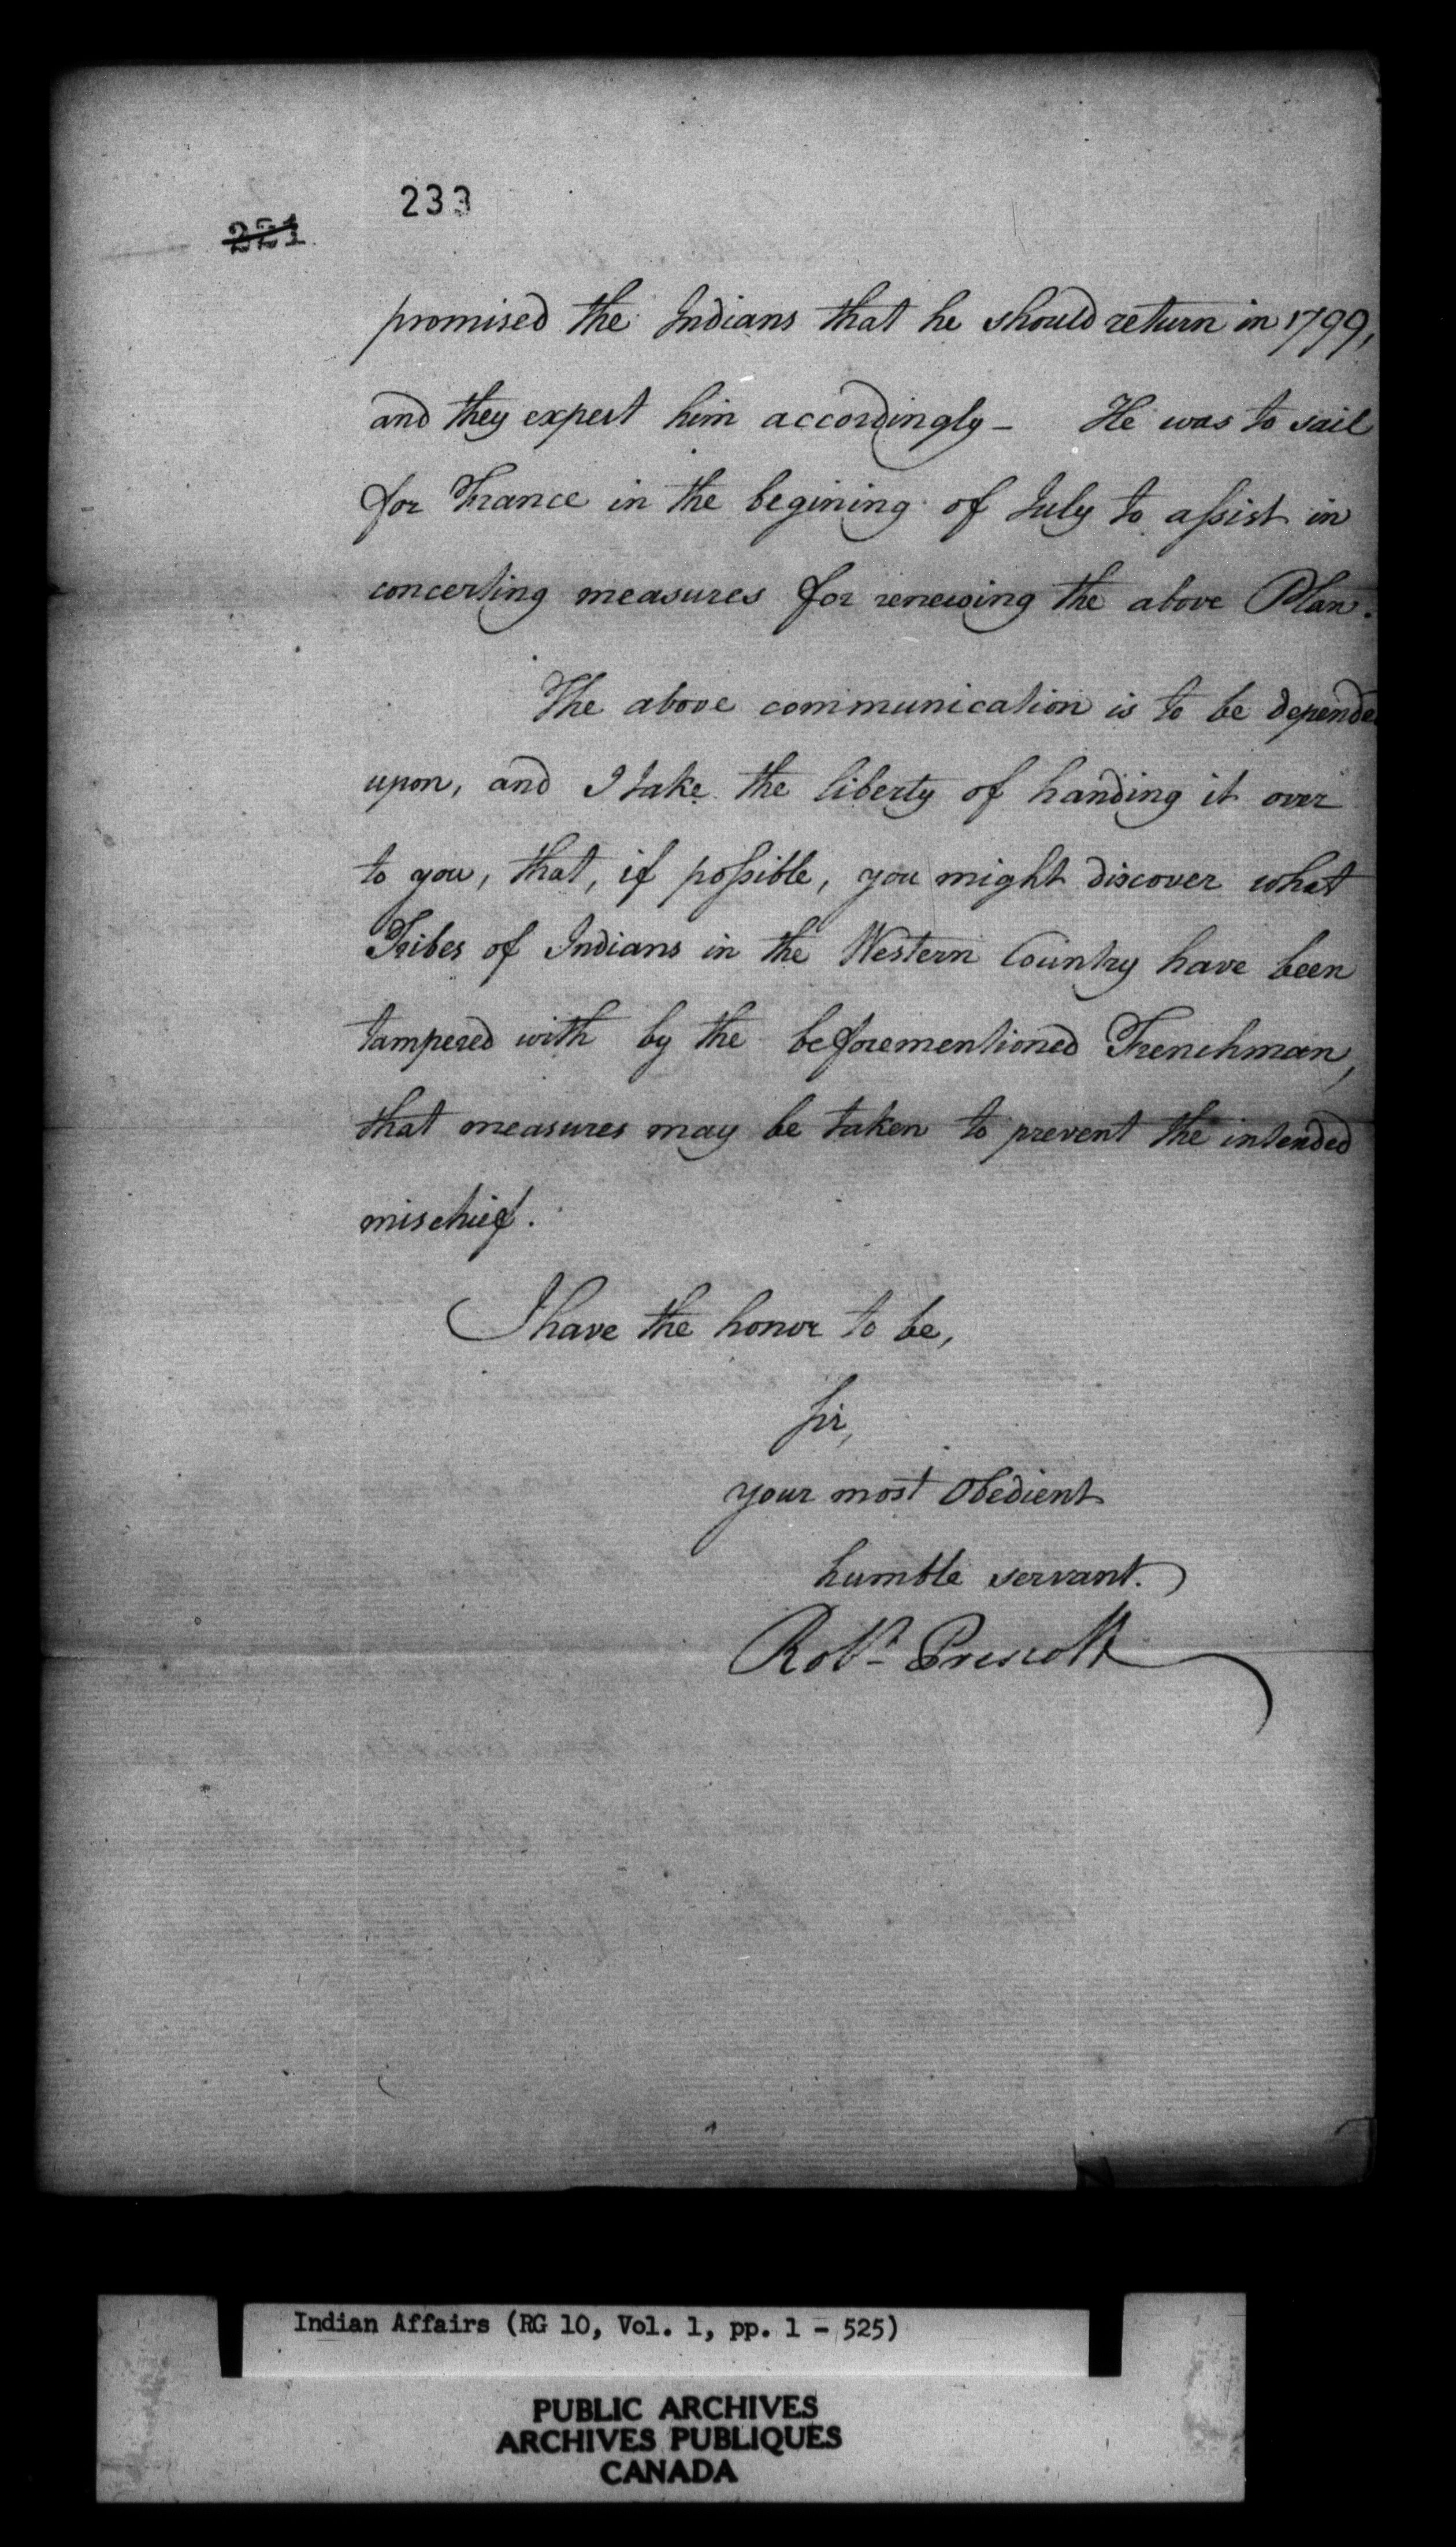 233
221
promised the Indians that he should return in 1799,
and they expect him accordingly - He was to sail
for France in the begining of July to assist in
concerting measures for renewing the above Plan.
The above communication is to be depende
upon, and I take the liberty of handing it over
to you, that, if possible, you might discover what
Tribes of Indians in the Western Country have been
tampered with by the beforementioned Frenchman,
that measures may be taken to prevent the intended
mischief.
I have the honor to be,
Sir,
your most Obedient
humble servant.
Robt Prescott
Indian Affairs (RG 10, Vol. 1, pp. 1 - 525)
PUBLIC ARCHIVES
ARCHIVES PUBLIQUES
CANADA